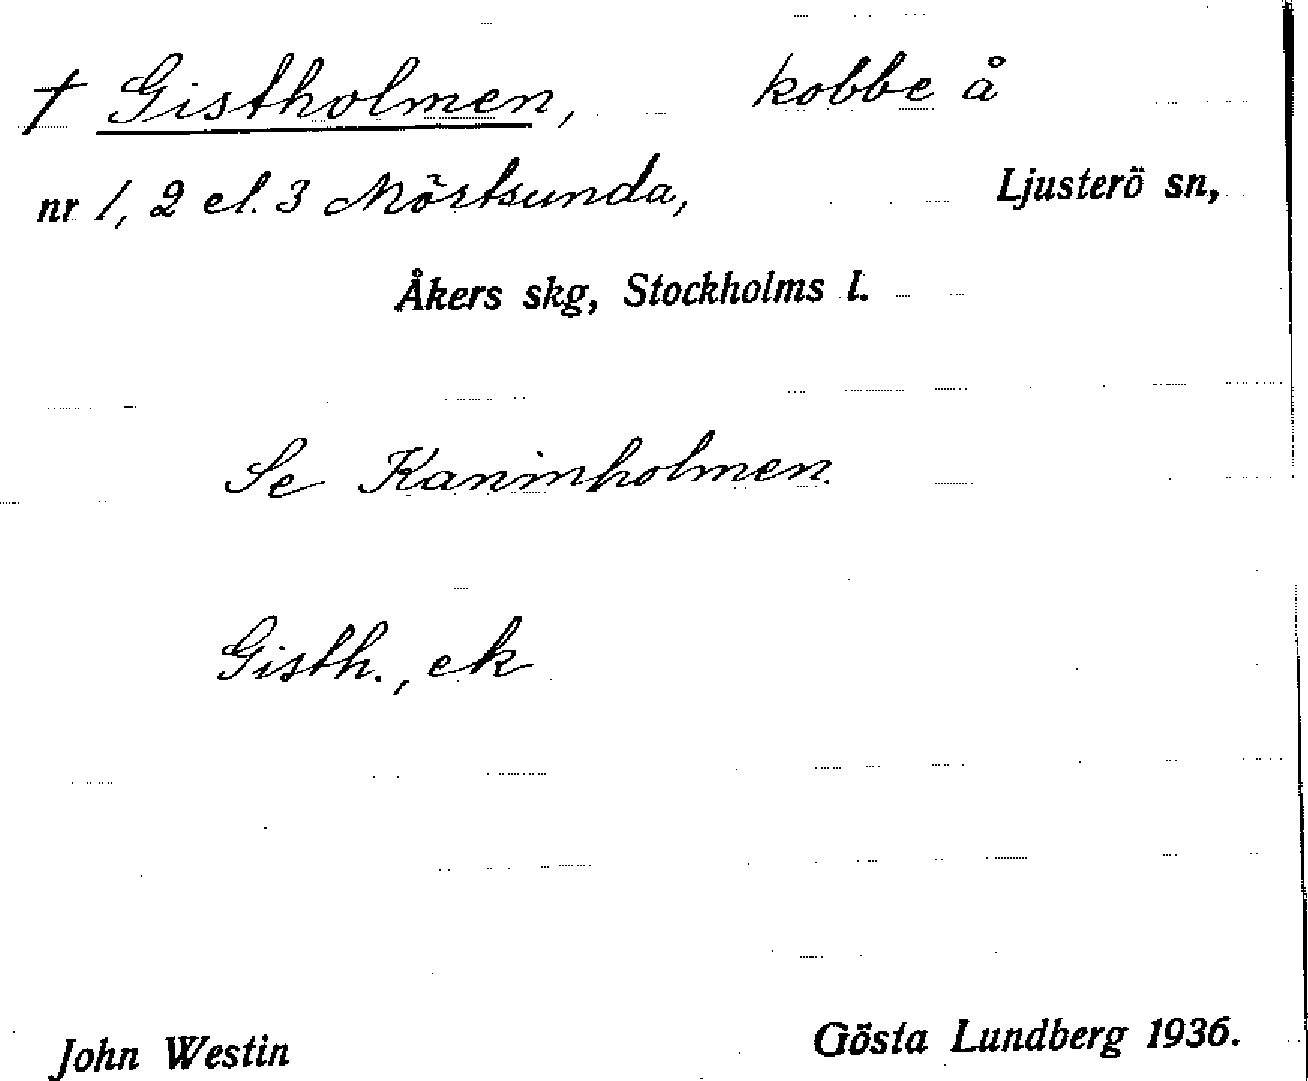 † Gistholmen, kobbe å
nr 1, 2 el. 3 Mörtsunda, Ljusterö sn,
Åkers skg, Stockholms l.
Se Kaninholmen.
Gisth., ek
John Westin Gösta Lundberg 1936.